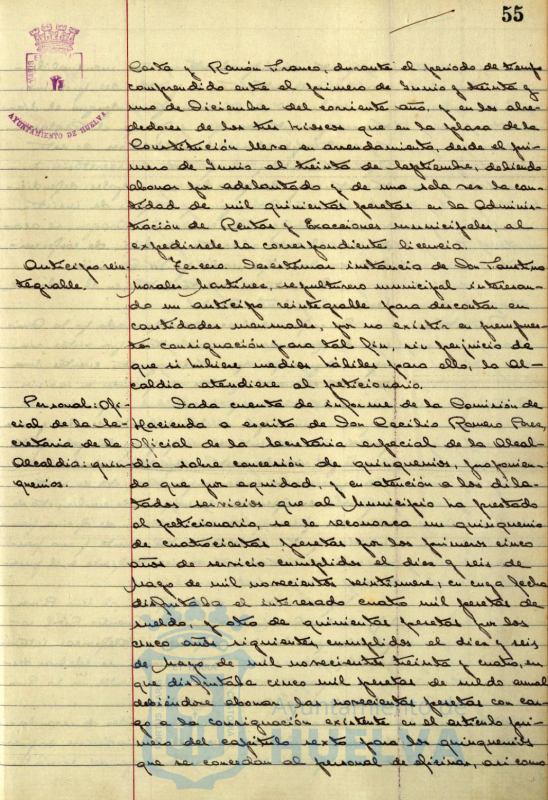 55
AYUNTAMIENTO DE HUELVA
Costa y Ramón Franco, durante el periodo de tiempo
comprendido entre el primero de Junio y treinta y
uno de Diciembre del corriente año, y en los alre-
dedores de los tres kioscos que en la plaza de la
Constitución lleva en arrendamiento, desde el pri-
mero de Junio al treinta de Septiembre, debiendo
abonar por adelantado y de una sola vez la can-
tidad de mil quinientas pesetas en la Adminis-
tración de Rentas y Exacciones municipales, al
expedirsele la correspondiente licencia.
Anticipo rein-
tegrable.
Tercero Desestimar instancia de Don Faustino
Morales Martínez, sepulturero municipal interesan-
do un anticipo reintegrable para descontar en
cantidades mensuales, por no existir en presupues-
to consignación para tal fin, sin perjuicio de
que si hubiere medios hábiles para ello, la Al-
caldia atendiere al peticionario.
Personal: Ofi-
cial de la Se-
cretaria de la
Alcaldia: quin-
quenios.
Dada cuenta de informe de la Comisión de
Hacienda a escrito de Don Cecilio Romero Pérez,
Oficial de la Secretaria especial de la Alcal-
dia sobre concesión de quinquenios, proponien-
do que por equidad, y en atención a los dila-
tados servicios que al Municipio ha prestado
el peticionario, se le reconozca un quinquenio
de cuatrocientas pesetas por los primeros cinco
años de servicio cumplidos el diez y seis de
Mayo de mil novecientos veintinueve, en cuya fecha
disfrutaba el interesado cuatro mil pesetas de
sueldo, y otro de quinientas pesetas por los
cinco años siguientes, cumplidos el diez y seis
de Mayo de mil novecientos treinta y cuatro, en
que disfrutaba cinco mil pesetas de sueldo anual
debiéndose abonar las novecientas pesetas con car-
go a la consignación existente en el artículo pri-
mero del capitulo sexto para los quinquenios
que se concedan al personal de oficinas, asi como
Ayuntamiento de
HUELVA